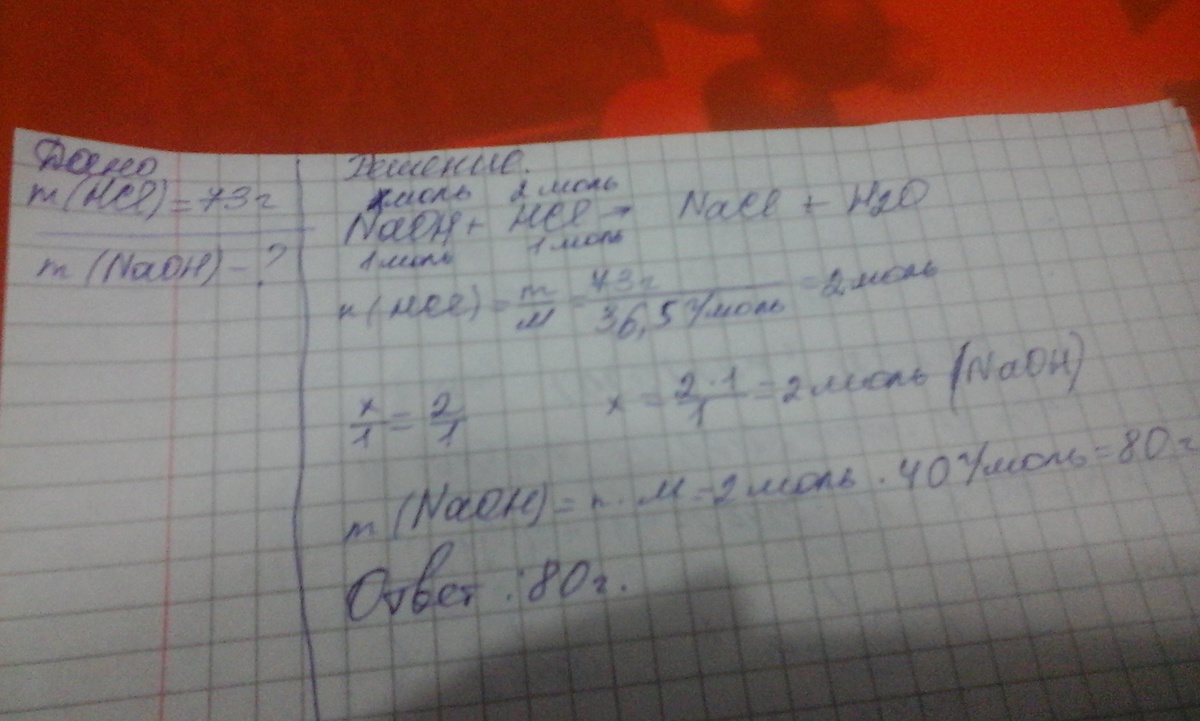 Дано
m(HCl) = 73 г
m (NaOH) - ?
Решение.
x моль 2 моль
NaOH + HCl → NaCl + H2O
1 моль 1 моль
n (HCl) = m/M = 73 г/36,5 г/моль = 2 моль
x/1 = 2/1 x = 2·1/1 = 2 моль (NaOH)
m (NaOH) = n · M = 2 моль · 40 г/моль = 80 г
Ответ : 80 г.